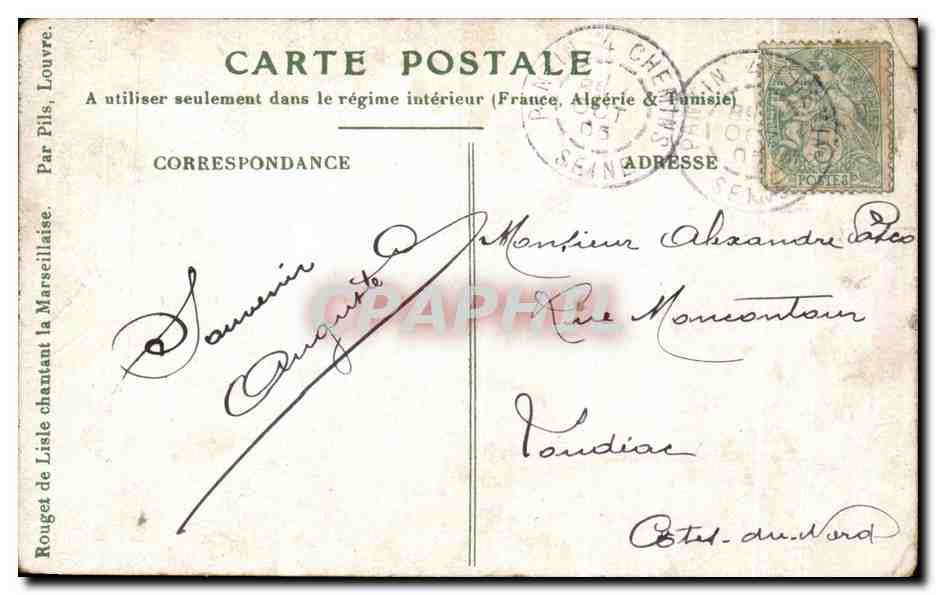 CARTE POSTALE
A utiliser seulement dans le régime intérieur (France, Algérie & Tunisie)
CORRESPONDANCE
ADRESSE
Souvenir
Auguste
Monsieur Alexandre
Rue Moncontour
Loudéac
Côtes-du-Nord
Rouget de Lisle chantant la Marseillaise. Par Pils, Louvre.
4 CHEMINS
OCT
05
SEINE
4
SEINE
POSTES
CPAPHIL